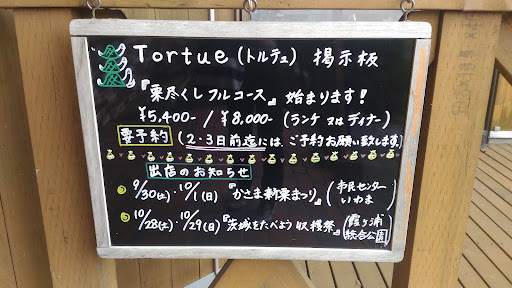 Tortue (トルテュ) 掲示板
『栗尽くしフルコース』 始まります!
¥5,400- / ¥8,000- (ランチ 又は ディナー)
要予約 (2・3日前迄には、ご予約お願い致します)
出店のお知らせ
9/30(土)・10/1(日) 『かさま新栗まつり』 (市民センターいわま)
10/28(土)・10/29(日) 『茨城をたべよう収穫祭』 (霞ヶ浦総合公園)